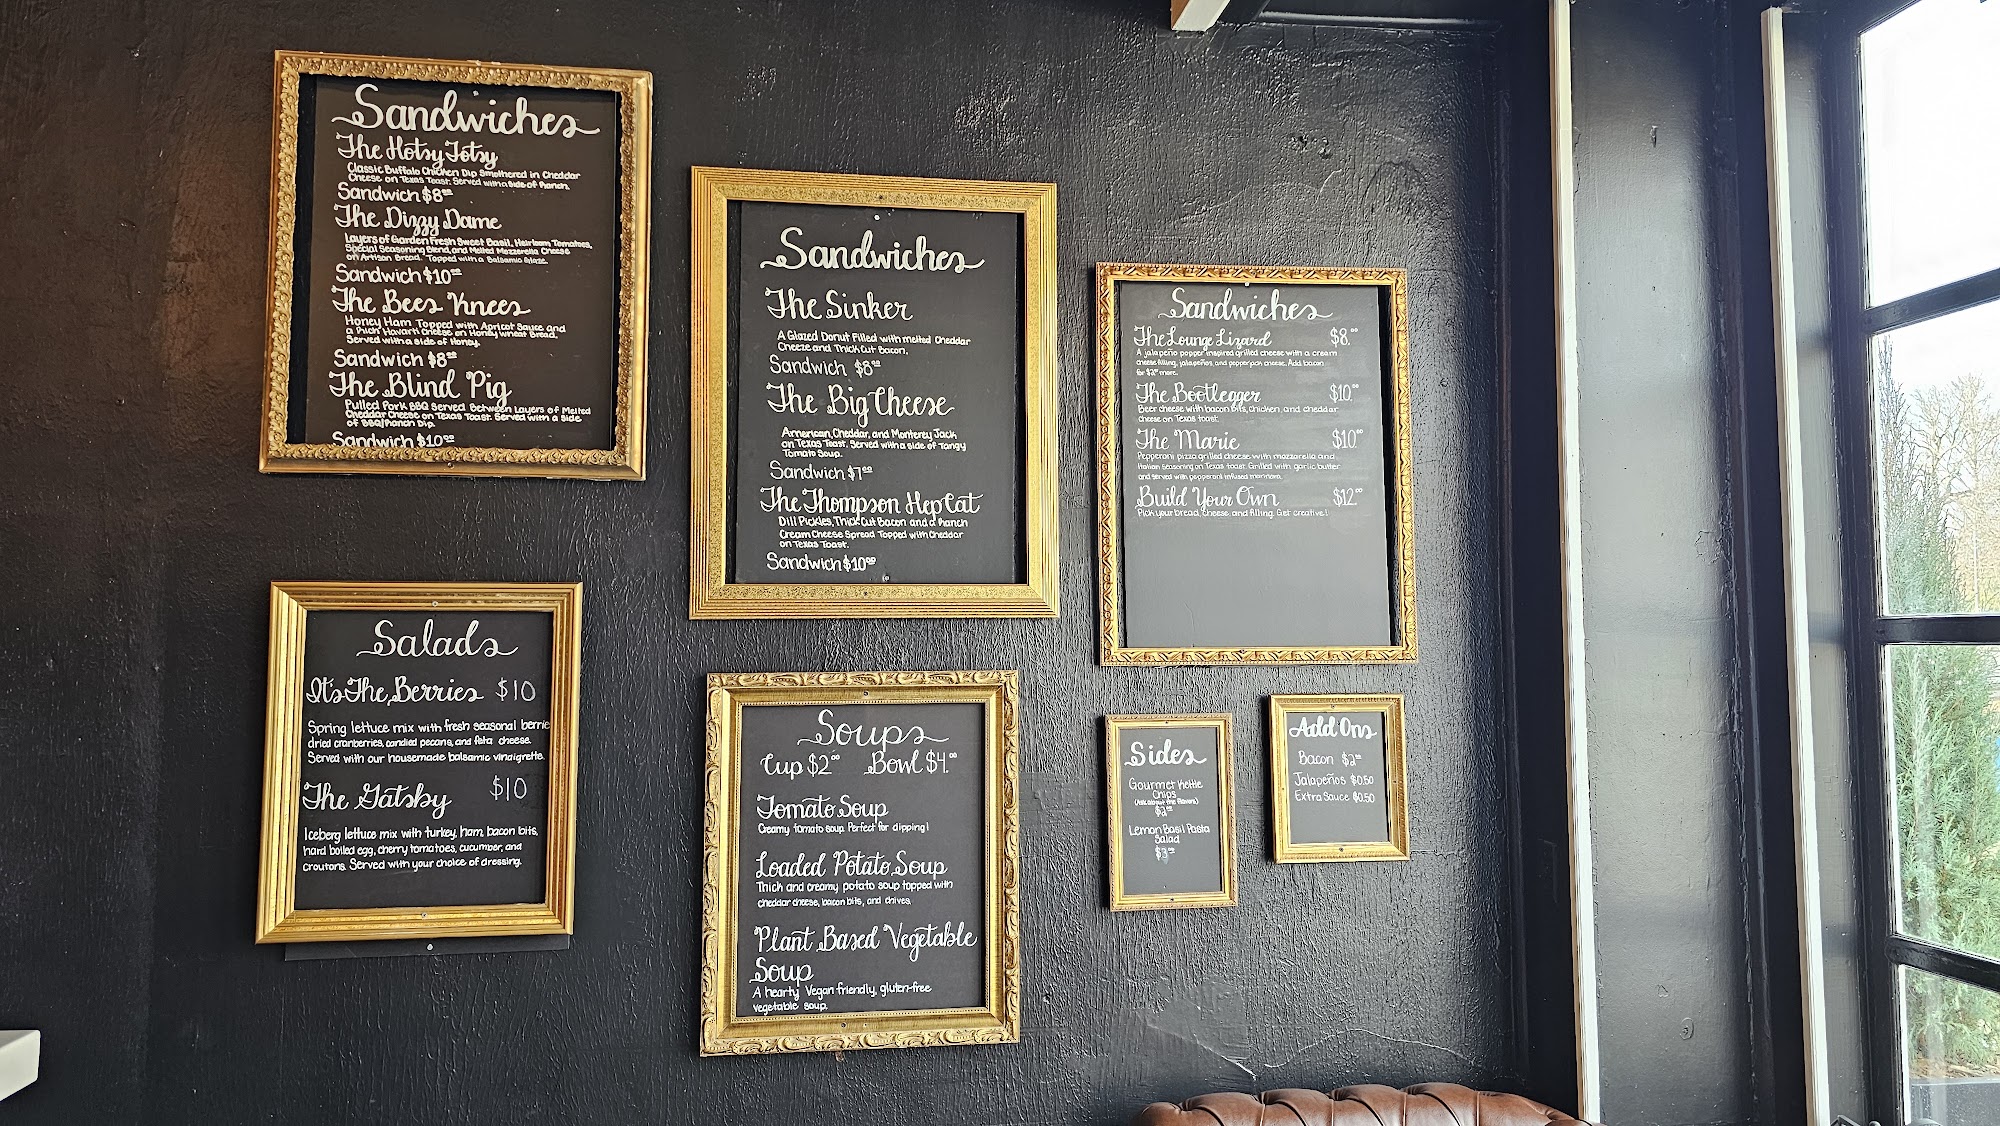 Sandwiches
The Hotsy Totsy
Classic Buffalo Chicken Dip Smothered in Cheddar
Cheese on Texas Toast. Served with a side of Ranch.
Sandwich $8.00
The Dizzy Dame
Layers of Garden Fresh Sweet Basil, Heirloom Tomatoes,
Special Seasoning Blend, and Melted Mozzerella Cheese
on Artisan Bread. Topped with a Balsamic Glaze.
Sandwich $10.00
The Bees Knees
Honey Ham Topped with Apricot Sauce and
a Rich Havarti Cheese on Honey Wheat Bread.
Served with a side of Honey.
Sandwich $8.00
The Blind Pig
Pulled Pork BBQ Served Between Layers of Melted
Cheddar Cheese on Texas Toast. Served with a Side
of BBQ/Ranch Dip.
Sandwich $10.00
Sandwiches
The Sinker
A Glazed Donut Filled with melted Cheddar
Cheeze and Thick Cut Bacon.
Sandwich $8.00
The Big Cheese
American, Cheddar, and Monterey Jack
on Texas Toast. Served with a side of Tangy
Tomato Soup.
Sandwich $7.00
The Thompson Hep Cat
Dill Pickles, Thick Cut Bacon and a Ranch
Cream Cheese Spread Topped with Cheddar
on Texas Toast.
Sandwich $10.00
Sandwiches
The Lounge Lizard $8.00
A jalapeño popper inspired grilled cheese with a cream
cheese filling, jalapeños, and pepperjack cheese. Add bacon
for $2.00 more.
The Bootlegger $10.00
Beer cheese with bacon bits, chicken, and cheddar
cheese on Texas toast.
The Marie $10.00
Pepperoni pizza grilled cheese with mozzarella and
Italian seasoning on Texas toast. Grilled with garlic butter
and served with pepperoni infused marinara.
Build Your Own $12.00
Pick your bread, cheese, and filling. Get creative!
Salads
It's The Berries $10
Spring lettuce mix with fresh seasonal berrie
dried cranberries, candied pecans, and feta cheese.
Served with our housemade balsamic vinaigrette.
The Gatsby $10
Iceberg lettuce mix with turkey, ham, bacon bits,
hard boiled egg, cherry tomatoes, cucumber, and
croutons. Served with your choice of dressing.
Soups
Cup $2.00 Bowl $4.00
Tomato Soup
Creamy tomato soup. Perfect for dipping!
Loaded Potato Soup
Thick and creamy potato soup topped with
cheddar cheese, bacon bits, and chives.
Plant Based Vegetable
Soup
A hearty Vegan friendly, gluten-free
vegetable soup.
Sides
Gourmet Kettle
Chips
(Ask about the flavors)
$2.00
Lemon Basil Pasta
Salad
$3.00
Add Ons
Bacon $2.00
Jalapeños $0.50
Extra Sauce $0.50